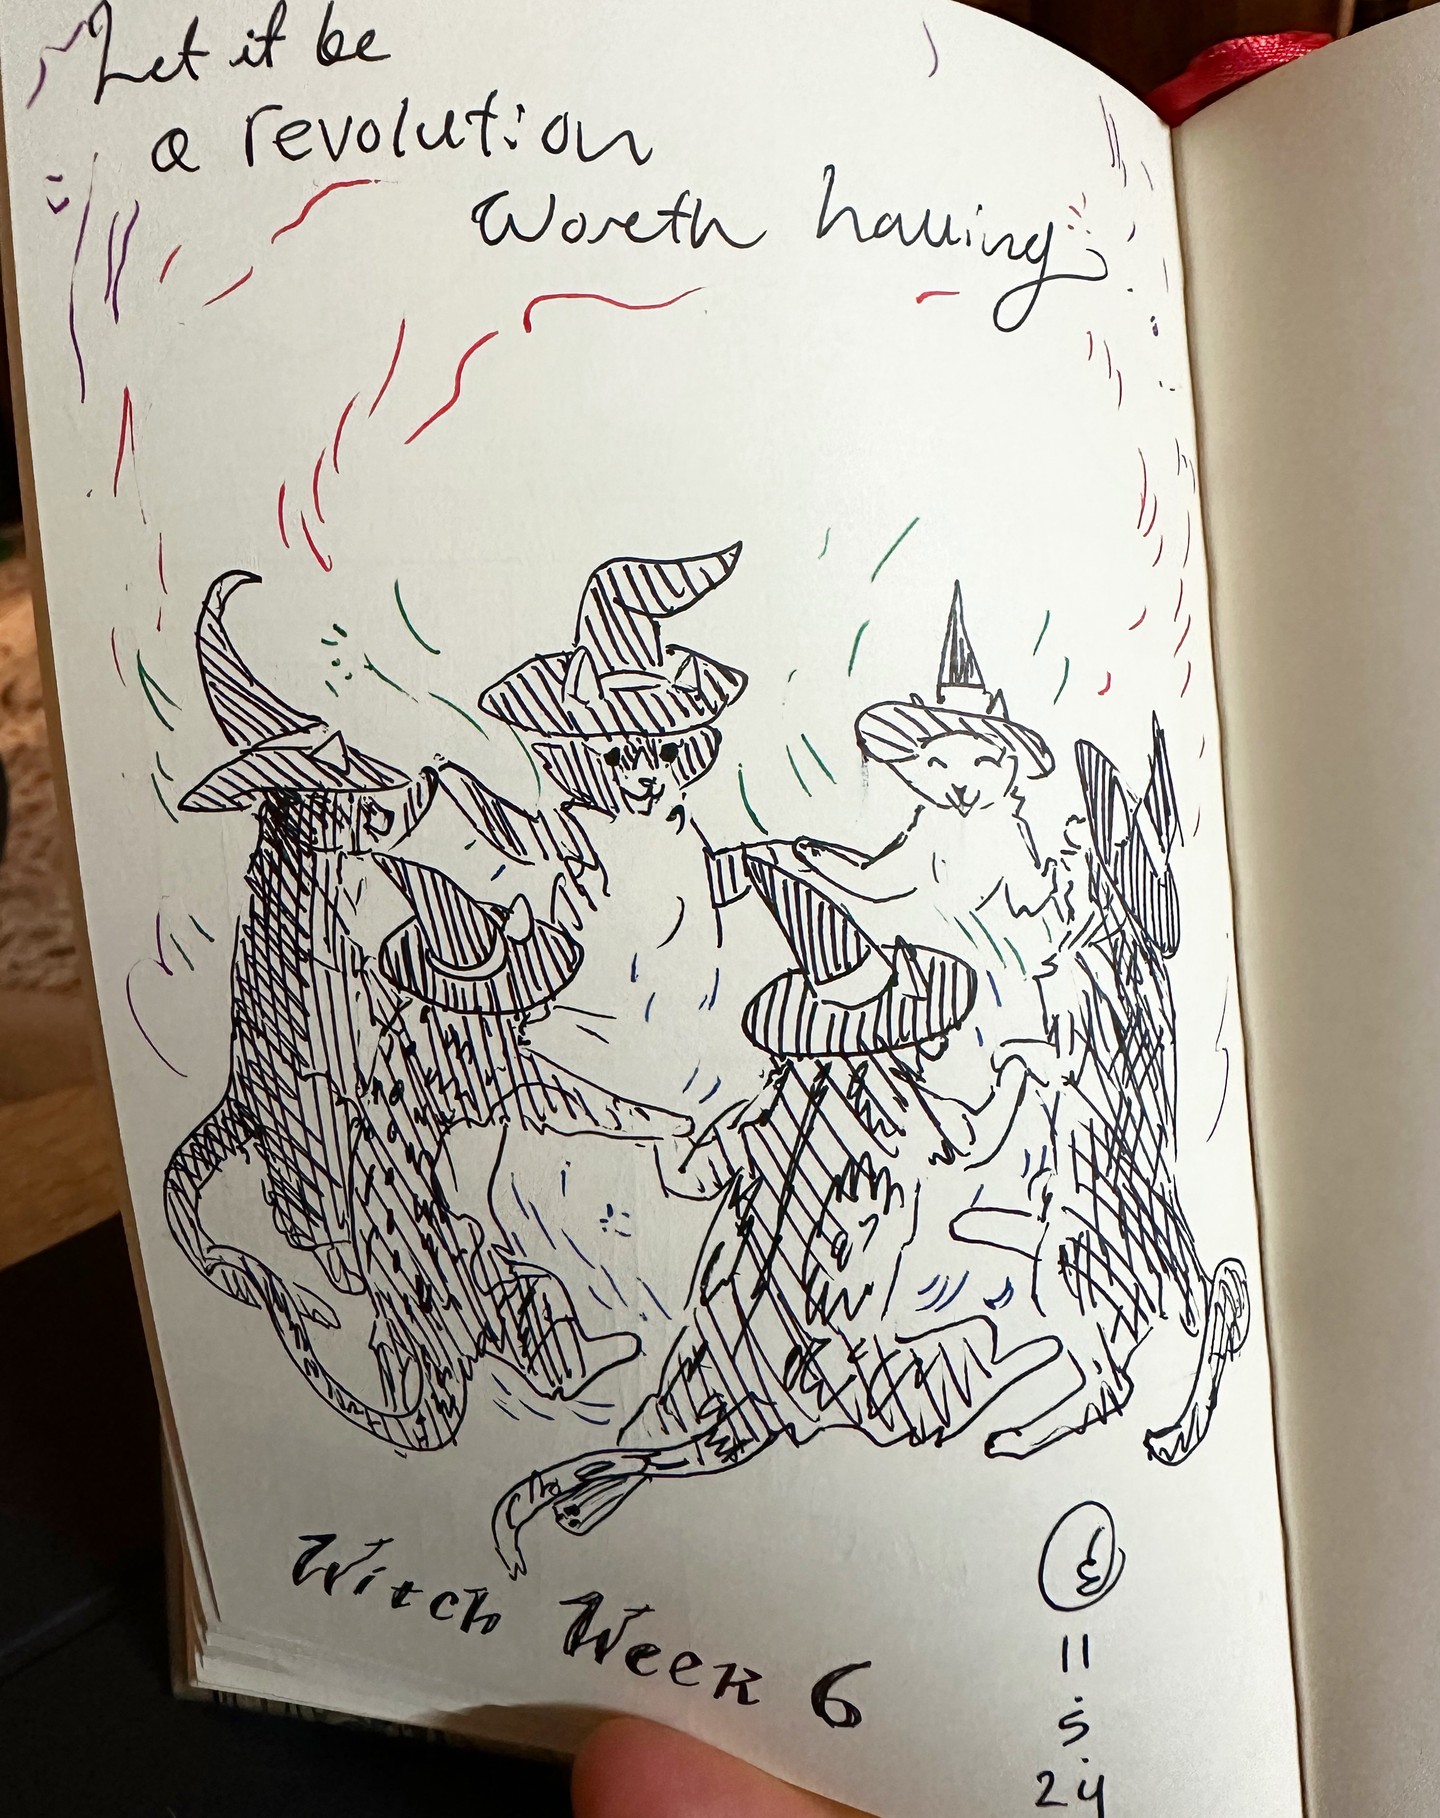 Let it be
a revolution
Worth having
Witch Week 6
11
5
24